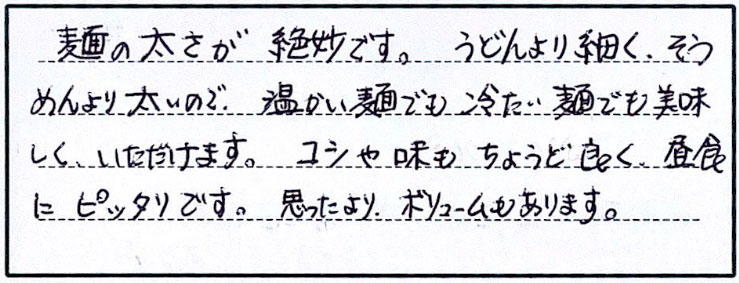 麺の太さが絶妙です。うどんより細く、そう
めんより太いので、温かい麺でも冷たい麺でも美味
しく、いただけます。コシや味もちょうど良く、昼食
にピッタリです。思ったより、ボリュームもあります。